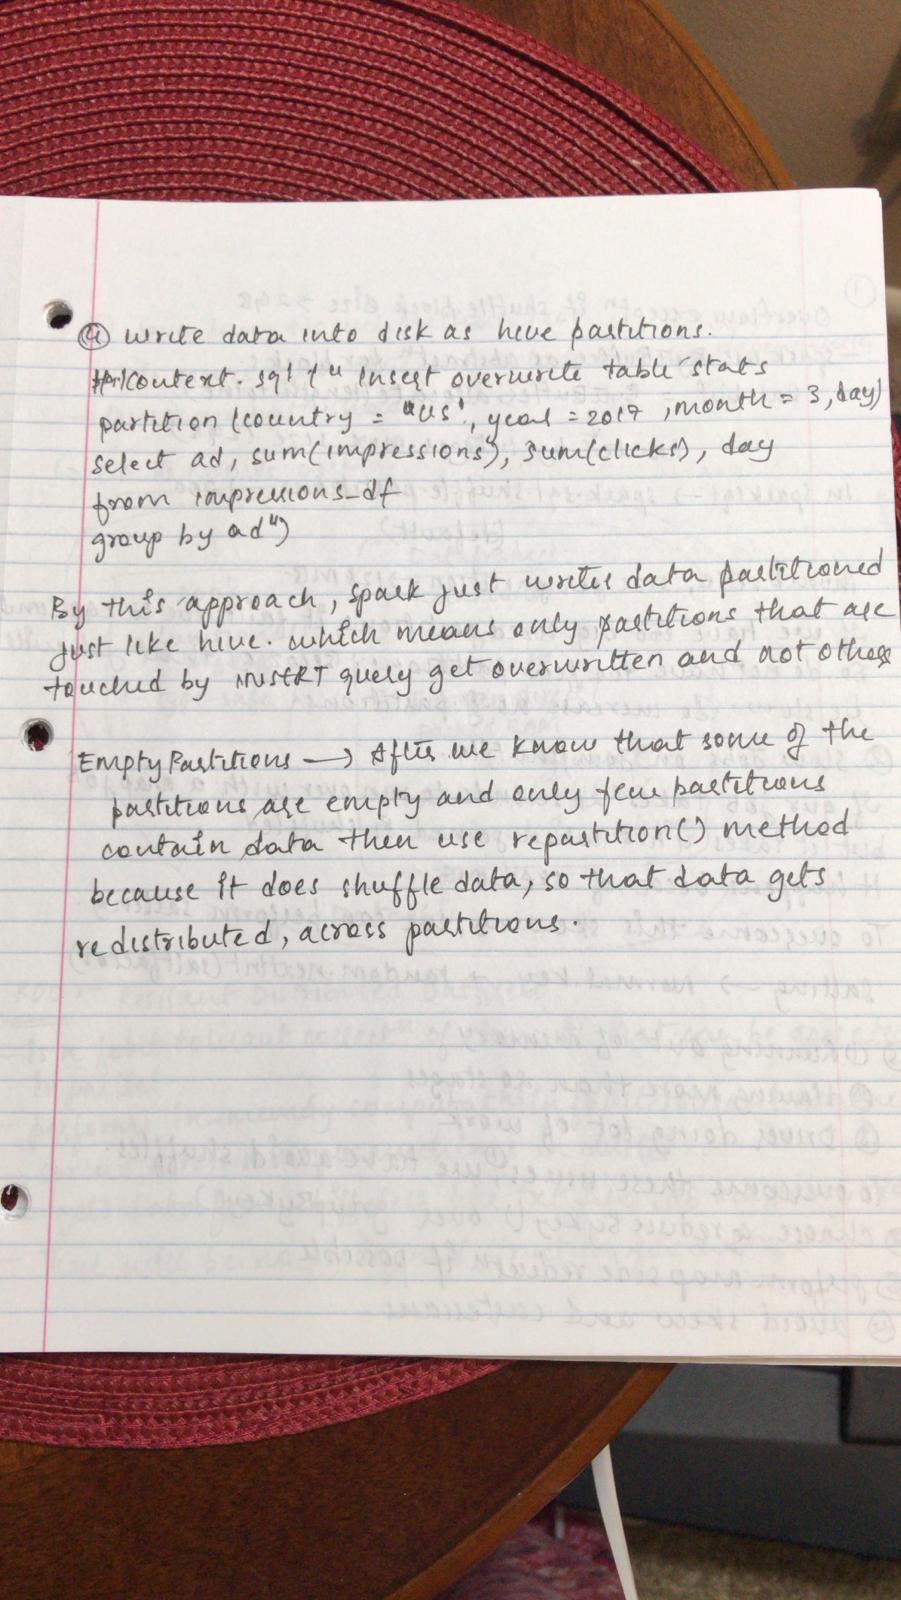 ④ write data into disk as hive partitions.
context.sql ("Insert overwrite table stats
partition (country = "US', year = 2017, month = 3, day)
select ad, sum(impressions), sum(clicks), day
from impressions_df
group by ad")
By this approach, spark just writes data partitioned
just like hive. which means only partitions that are
touched by INSERT query get overwritten and not others
Empty Partitions → After we know that some of the
partitions are empty and only few partitions
contain data then use repartition() method
because it does shuffle data, so that data gets
redistributed, across partitions.